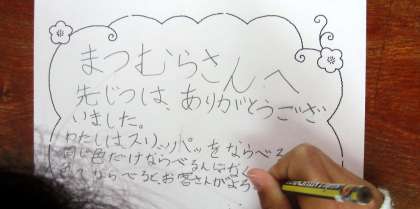 まつむらさんへ
先じつは、ありがとうござ
いました。
わたしはスリッパをならべる
同じ色だけならべるんじゃなく
てならべるとお客さんがよろ